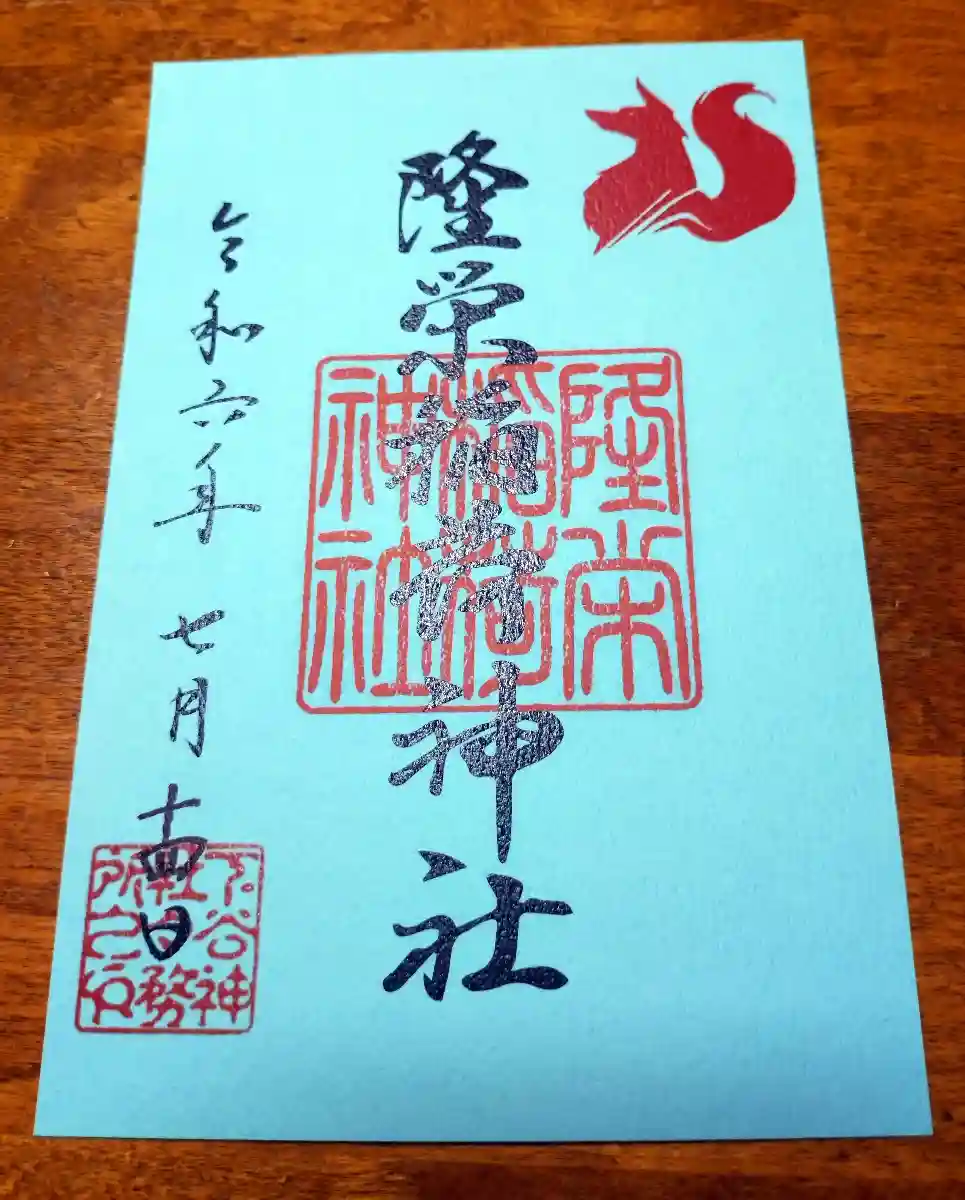 隆栄稲荷神社
隆栄
稲荷
神社
令和六年 七月 十四日
下谷神
社社務
所之印